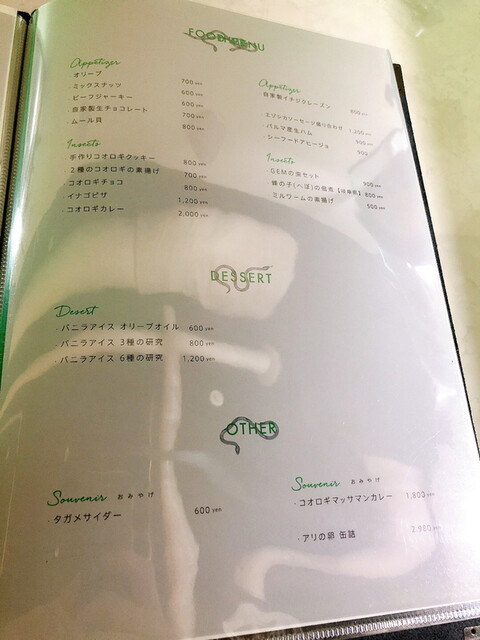 FOOD MENU
Appetizer
オリーブ 700 yen
ミックスナッツ 600 yen
ビーフジャーキー 600 yen
自家製生チョコレート 700 yen
ムール貝 800 yen
Insects
・手作りコオロギクッキー 800 yen
・2種のコオロギの素揚げ 700 yen
・コオロギチョコ 800 yen
・イナゴピザ 1,200 yen
・コオロギカレー 2,000 yen
Appetizer
自家製イチジクレーズン 800 yen
エゾシカソーセージ盛り合わせ 1,200 yen
・パルマ産生ハム 900 yen
・シーフードアヒージョ 900
Insects
・GEMの虫セット 900 yen
・蜂の子(へぼ)の佃煮 800 yen
・ミルワームの素揚げ 500 yen
DESSERT
Desert
・バニラアイス オリーブオイル 600 yen
・バニラアイス 3種の研究 800 yen
・バニラアイス 6種の研究 1,200 yen
OTHER
Souvenir おみやげ
・タガメサイダー 600 yen
Souvenir おみやげ
・コオロギマッサマンカレー 1,800 yen
・アリの卵 缶詰 2,980 yen